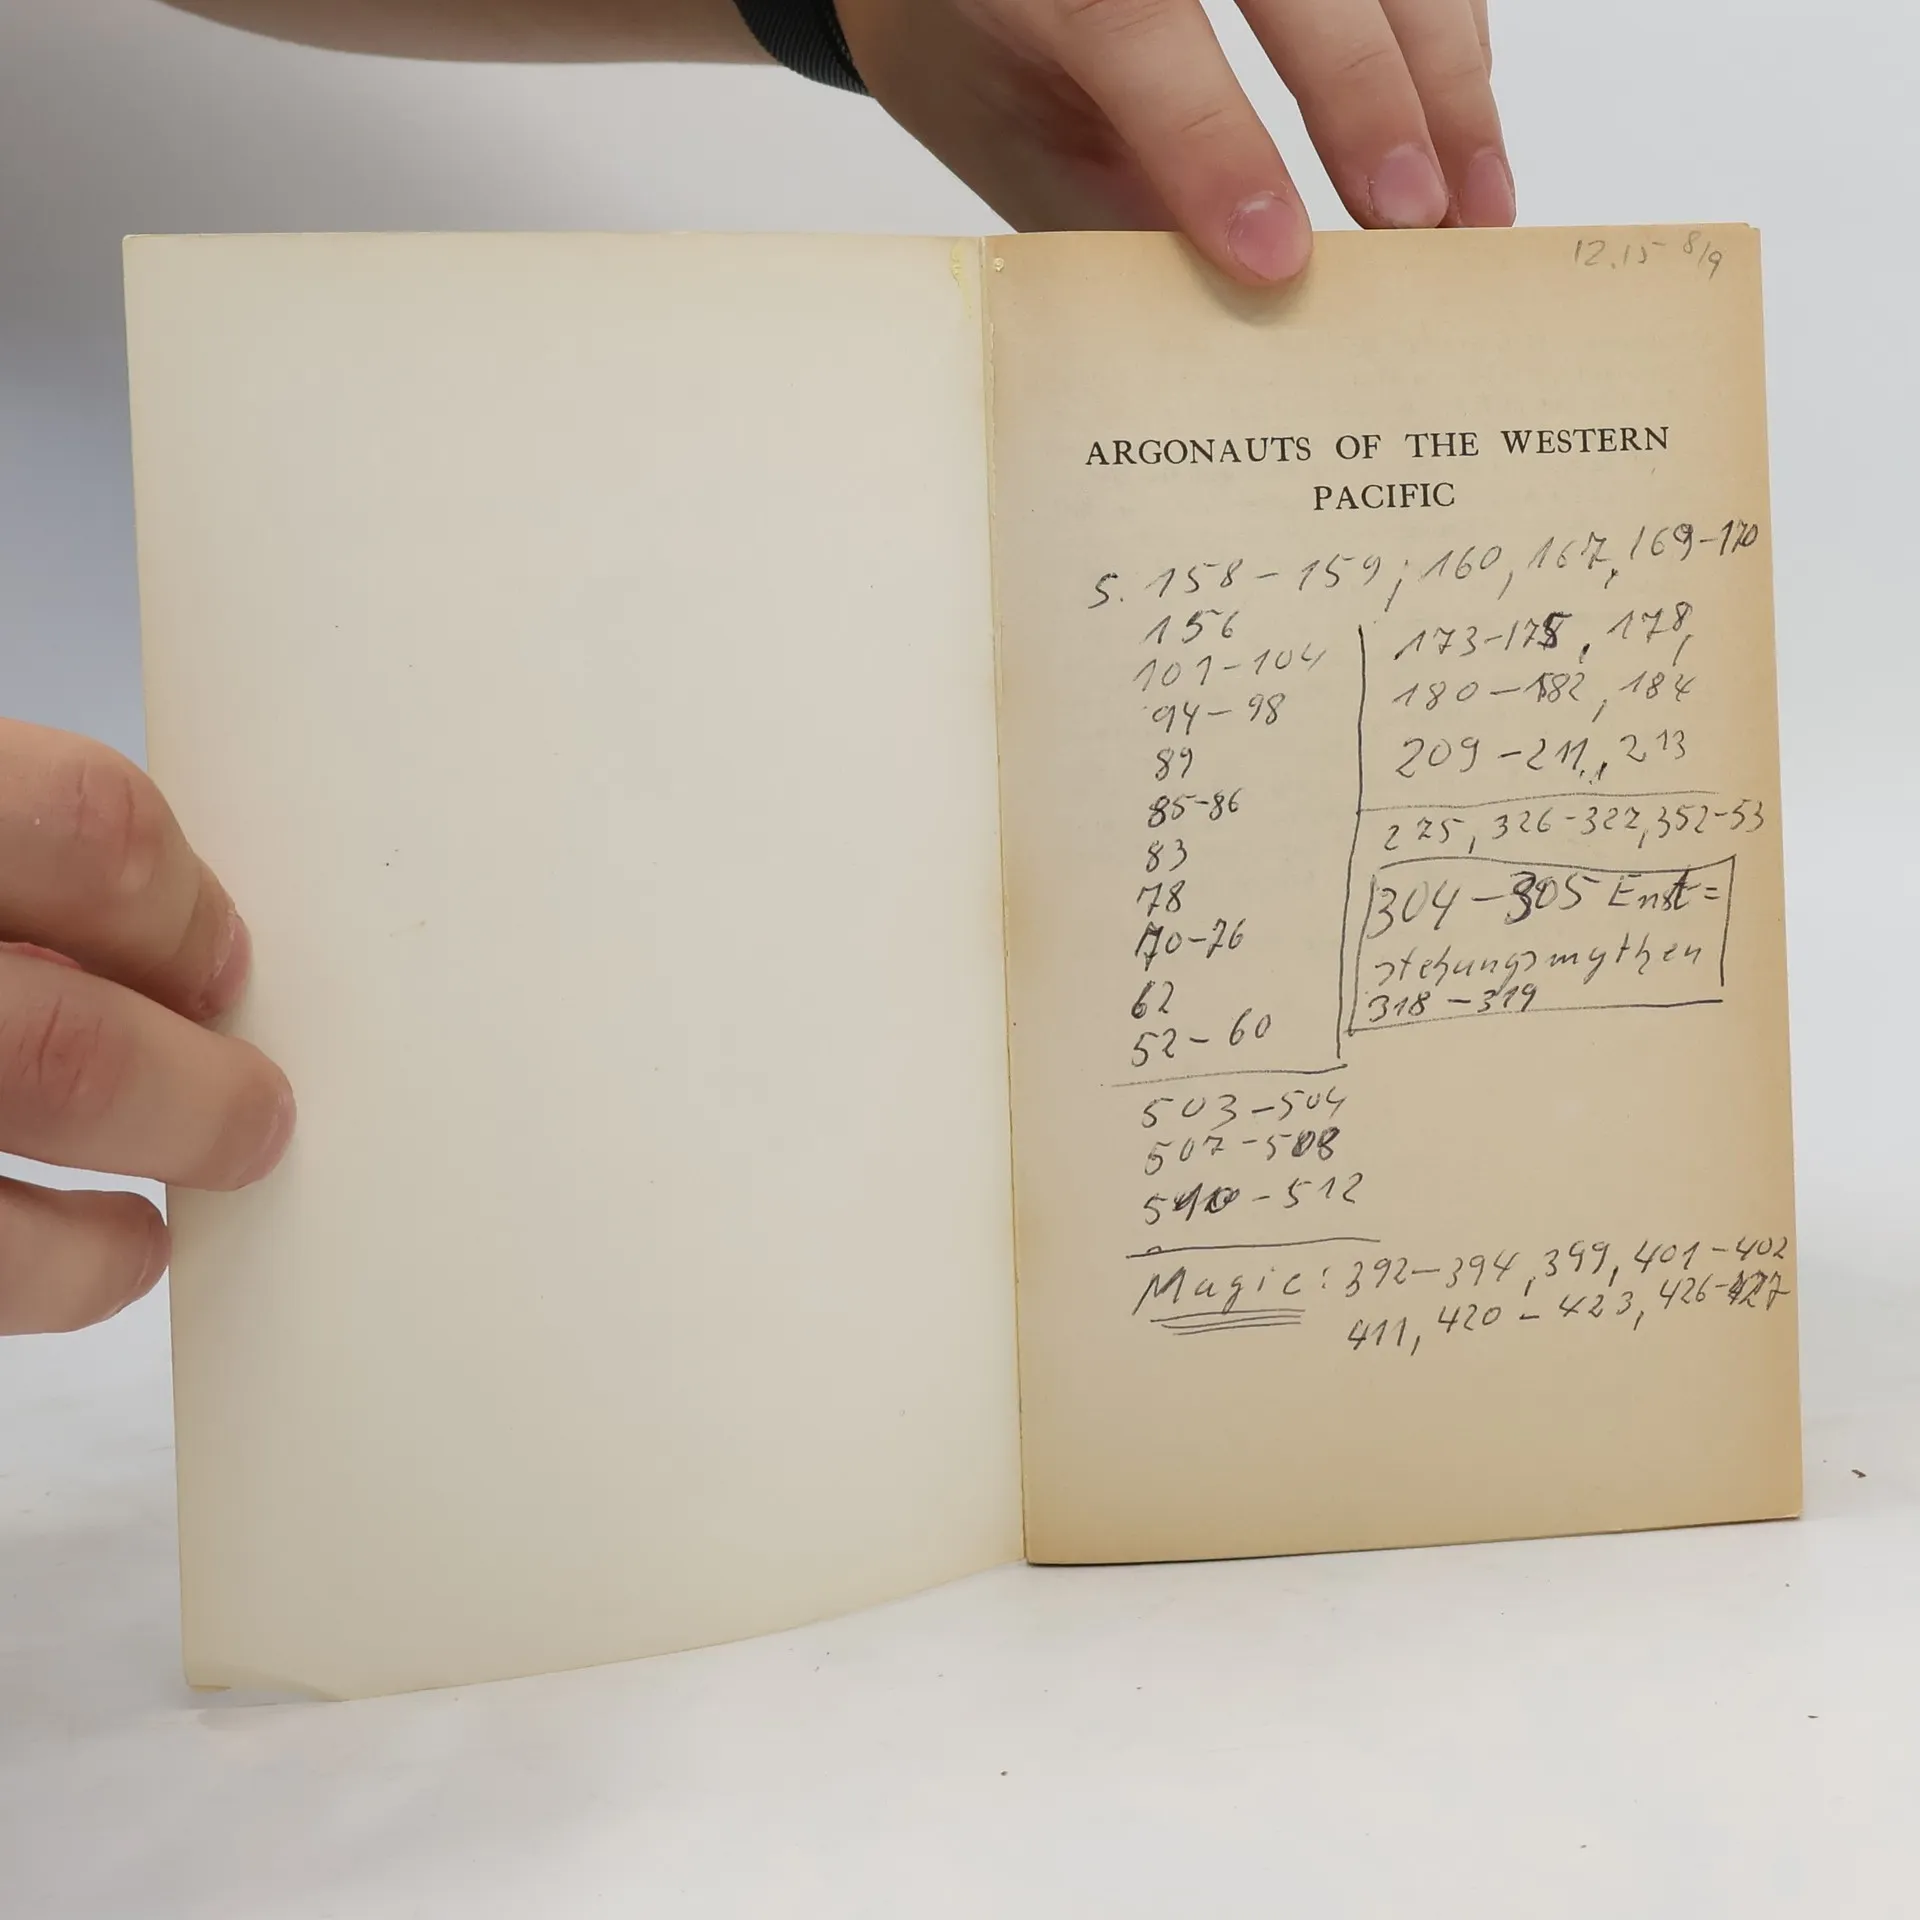 12.15 8/9
ARGONAUTS OF THE WESTERN
PACIFIC
S. 158 – 159; 160, 167, 169–170
156
101–104
94–98
89
85–86
83
78
70–76
62
52–60
173–175, 178,
180–182, 184
209–211, 213
275, 326–327, 352–53
304–305 Ent=
stehungsmythen
318–319
503–504
507–508
510–512
Magic: 392–394, 399, 401–402
411, 420–423, 426–427